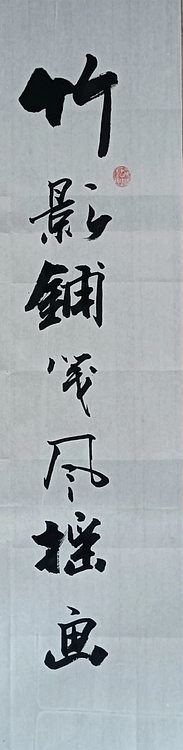 竹影铺笺风摇画